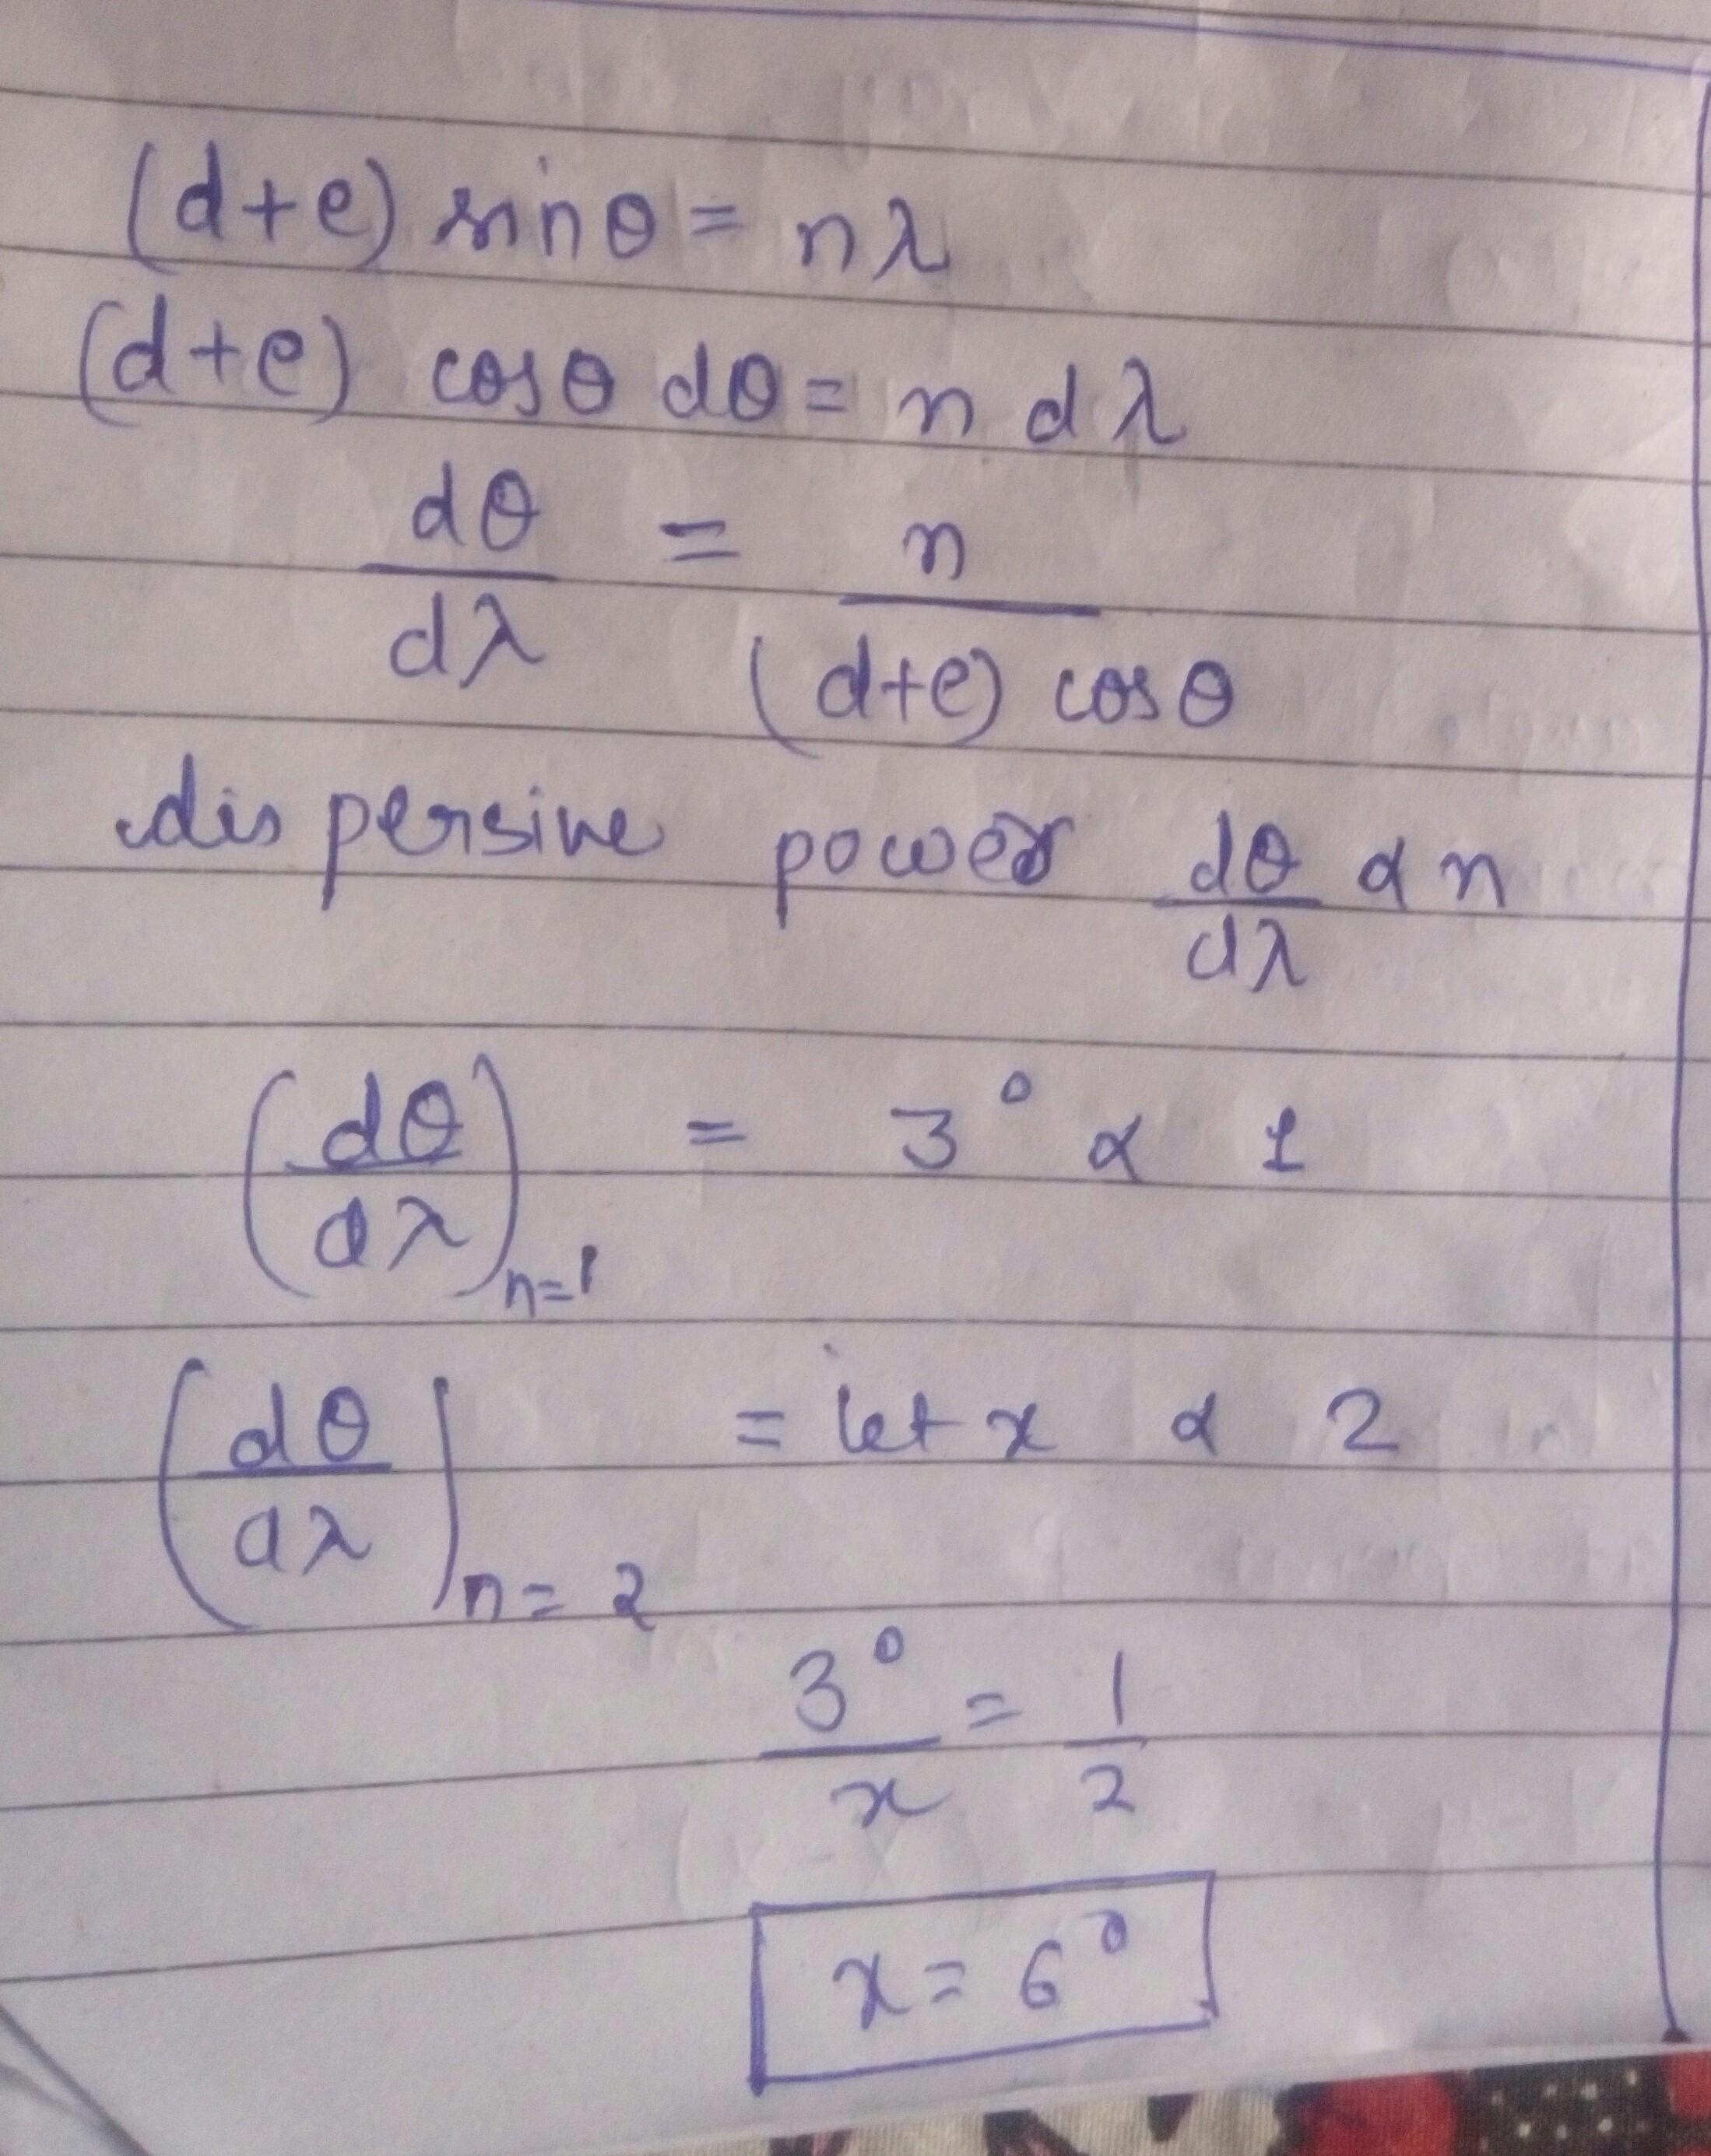 (d+e) sinθ = nλ
(d+e) cosθ dθ = n dλ
dθ/dλ = n/(d+e) cosθ
dispersive power dθ/dλ α n
(dθ/dλ)n=1 = 3° α 1
(dθ/dλ)n=2 = let x α 2
3°/x = 1/2
x = 6°